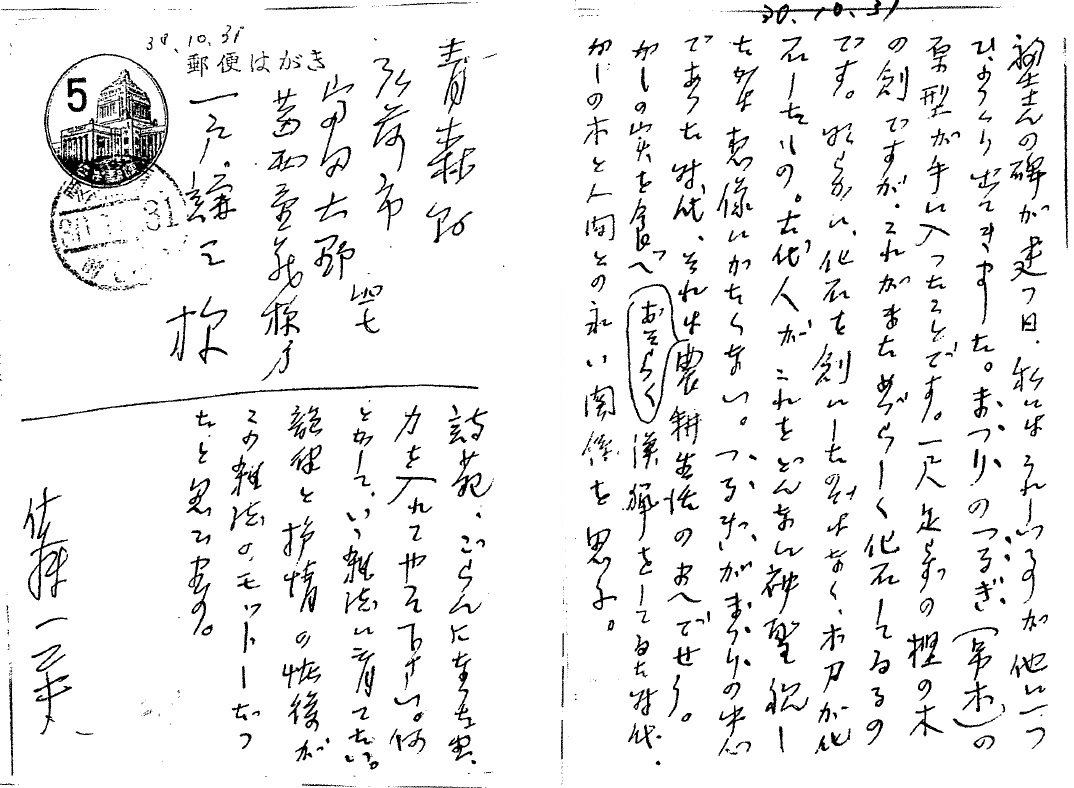 30.10.31
郵便はがき
5
青森縣
弘前市
富田大野 四七
葛西重雄様方
一戸謙三様
30.10.31
詩苑、ごらんになった由、
力を入れてやって下さい。何
とかして、いゝ雑誌に育てたい。
韻律と抒情の恢復が
この雑誌のモットーだっ
たと思ひます。
佐藤一英
30.10.31
さんの碑が建つ日、私にはうれしいものが他に一つ
ひょっくり出てきました。まつりのつるぎ(常木)の
原型が手に入ったことです。一尺足らずの樫の木
の剣ですが、これがまためづらしく化石してゐるの
です。明らかに、化石を剣にしたのではなく、木刀が化
石したもの。古代人がこれをどんなに神聖視し
たかは想像にかたくない。つるぎがまつりの中心
であった時代、それは農耕生活のまへでせう。
かしの実を食べおそらく漁猟をしてゐた時代、
かしの木と人間との永い関係を思ふ。